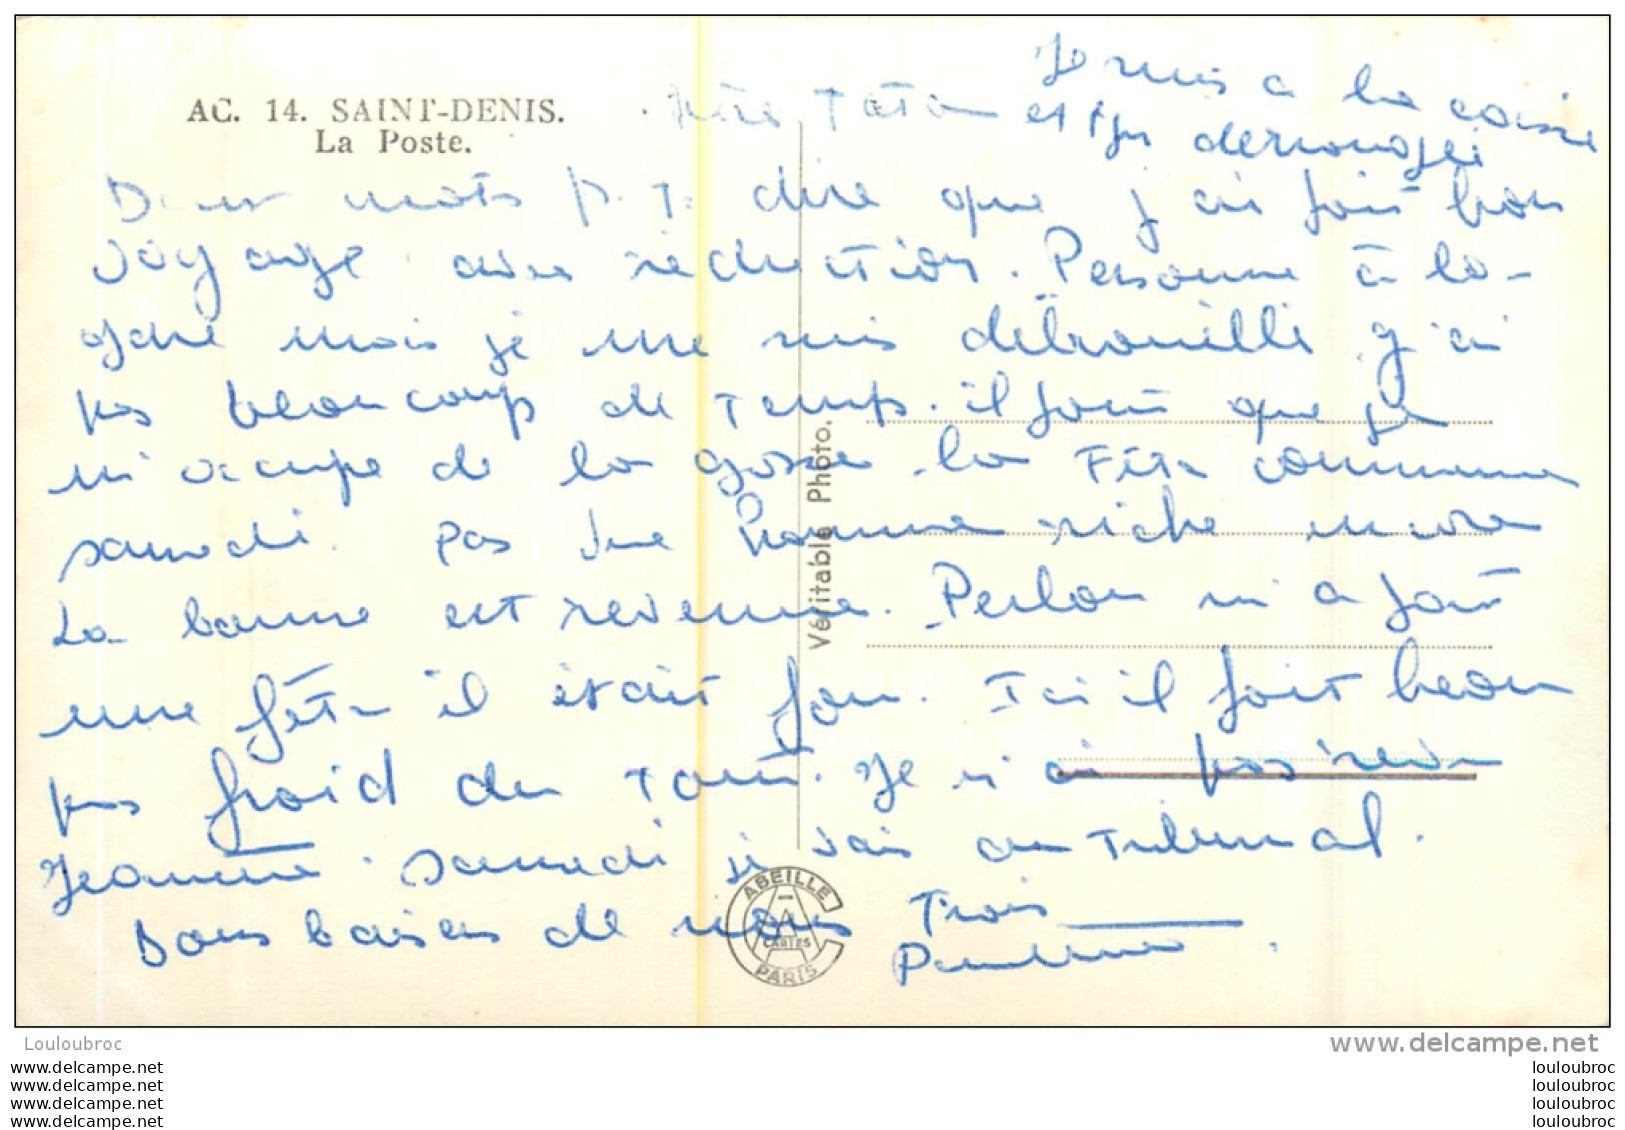 Je suis à la caisse
AC. 14. SAINT-DENIS.
La Poste.
Tata
et
Deux mots p. T. dire que j'ai fait bon
voyage avec réduction. Personne à la
gare mais je me suis débrouillé j'ai
pas beaucoup de temps. il faut que je
m'occupe de la gosse. la Fête commence
samedi. pas une
La bonne est revenue. m'a fait
une fête il était fou. Ici il fait beau
pas froid du tout. Je n'ai pas revu
Jeanne. samedi je vais au Tribunal.
Bons baisers de nous Trois
Véritable Photo.
ABEILLE
CARTES
PARIS
Louloubroc
www.delcampe.net
www.delcampe.net
www.delcampe.net
www.delcampe.net
www.delcampe.net
louloubroc
louloubroc
louloubroc
louloubroc